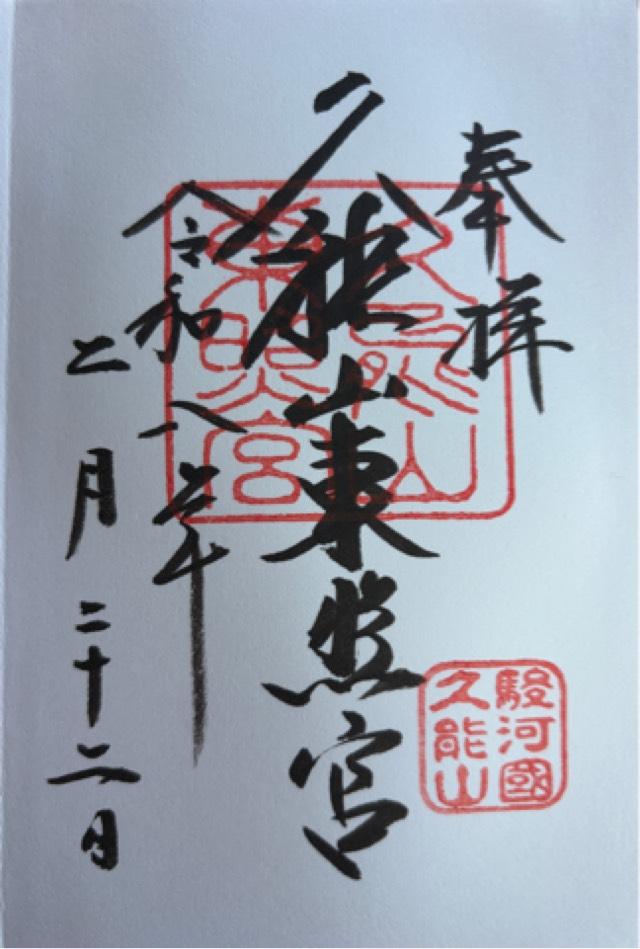 奉拝
久能山東照宮
久能山
東照宮
駿河國
久能山
令和八年
二月二十二日